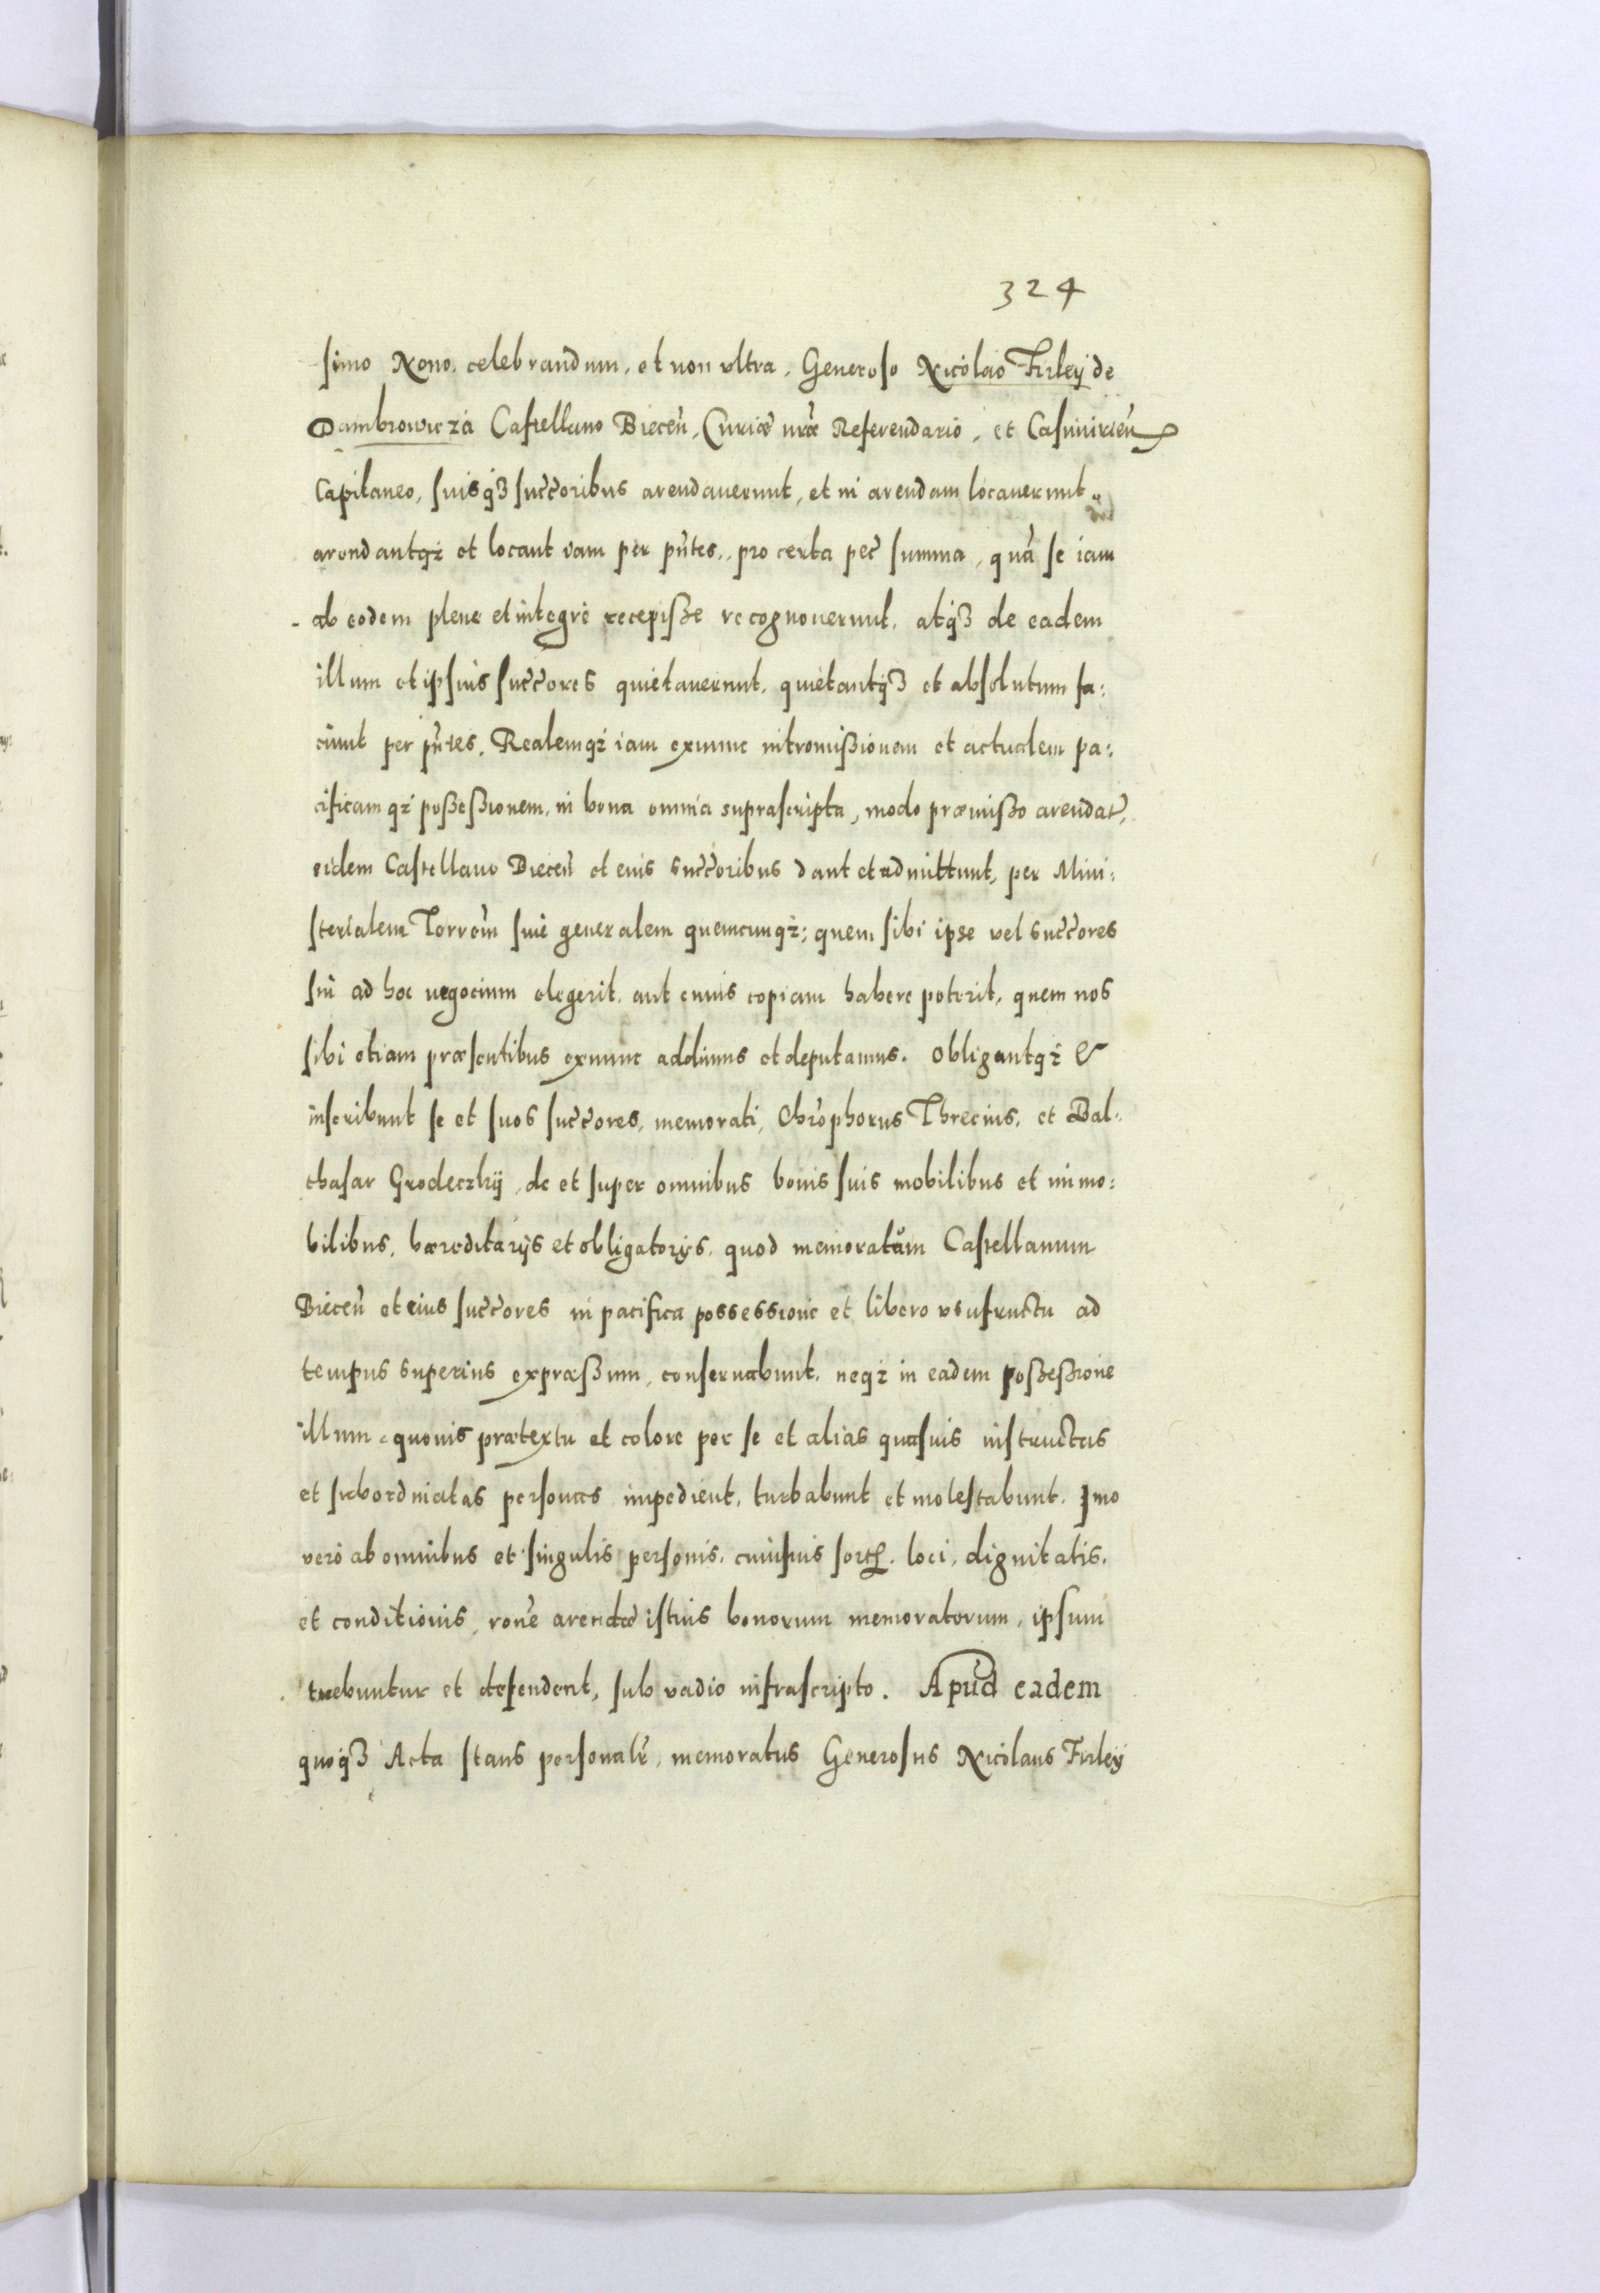 324
simo Nono. celebrandum, et non vltra, Generoso Nicolao Firley de
Dambrowicza Castellano Biecen̄, Curiæ nr̄æ Referendario, et Casimirien̄
Capitaneo, suisq3 succ̄oribus arendauerunt, et in arendam locauerunt
arendantq3 et locant iam per pn̄tes., pro certa pec̄ summa, quā se iam
ab eodem plene et integrè recepiße recognouerunt, atq3 de eadem
illum et ipsius succ̄ores quietauerunt, quietantq3 et absolutum fa:
ciunt per pn̄tes. Realemq3 iam exnunc intromißionem et actualem pa:
cificamq3 poßeßionem, in bona omnia suprascripta, modo præmißo arendat̄,
eidem Castellano Biecen̄ et eius succ̄oribus dant et admittunt, per Mini:
sterialem Terrōm siue generalem quemcunq3; quem sibi ipse vel succ̄ores
sui ad hoc negocium elegerit, aut cuius copiam habere poterit, quem nos
sibi etiam præsentibus exnunc addimus et deputamus. Obligantq3 &
inscribunt se et suos succ̄ores, memorati, Chr̄ophorus Threcius, et Bal:
thasar Grodeczkÿ, de et super omnibus bonis suis mobilibus et immo:
bilibus, hæreditarÿs et obligatorÿs, quod memoratum Castellanum
Biecen̄ et eius succ̄ores in pacifica possessione et libero vsufructu ad
tempus superius expræßum, conseruabunt, neq3 in eadem poßeßione
illum quouis prætextu et colore per se et alias quasuis instructas
et subordinatas personas impedient, turbabunt et molestabunt. Imo
verò ab omnibus et singulis personis, cuiusuis sort. loci, dignitatis,
et conditionis, ron̄e arendæ istius bonorum memoratorum, ipsum
tuebuntur et defendent, sub vadio infrascripto. Apud eadem
quoq3 Acta stans personalr̄, memoratus Generosus Nicolaus Firleÿ